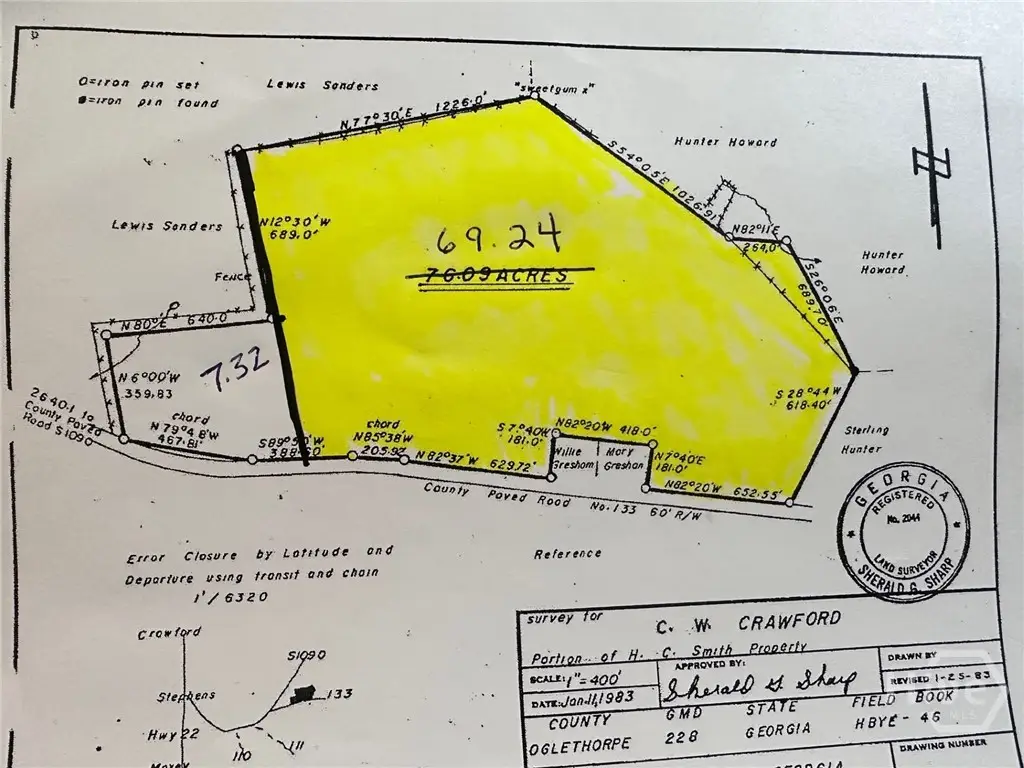 O=iron pin set
●=iron pin found
Lewis Sanders
"sweetgum x"
N77°30'E 1226.0'
Hunter Howard
S54°05'E 1026.91
N82°11'E
264.0'
Hunter
Howard
S26°06'E
689.70'
Lewis Sanders
N12°30'W
689.0'
69.24
76.09 ACRES
Fence
N80°E 640.0'
7.32
N6°00'W
359.83
chord
N79°48'W
467.81'
2640.1 to
County Paved
Road S1090
S89°50'W
388.90
chord
N85°38'W
205.92'
N82°37'W 629.72'
S7°40'W
181.0'
N82°20'W 418.0'
Willie
Gresham
Mary
Gresham
N7°40'E
181.0'
N82°20'W 652.55'
S28°44'W
618.40'
Sterling
Hunter
County Paved Road No. 133 60' R/W
GEORGIA
REGISTERED
No. 2044
LAND SURVEYOR
SHERALD G. SHARP
Error Closure by Latitude and
Departure using transit and chain
1'/6320
Reference
Crawford
S1090
Stephens
133
Hwy 22
110
111
Maxey
survey for C. W. CRAWFORD
Portion of H. C. Smith Property
SCALE: 1"=400'
APPROVED BY:
DRAWN BY
DATE: Jan. 11, 1983
Sherald G. Sharp
REVISED 1-25-83
COUNTY GMD STATE FIELD BOOK
OGLETHORPE 228 GEORGIA HBYE-46
DRAWING NUMBER